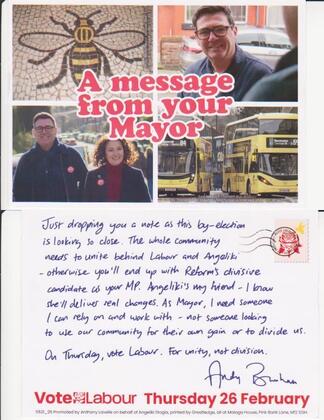 A message
from your
Mayor
Just dropping you a note as this by-election
is looking so close. The whole community
needs to unite behind Labour and Angeliki
- otherwise you'll end up with Reform's divisive
candidate as your MP. Angeliki's my friend - I know
she'll deliver real changes. As Mayor, I need someone
I can rely on and work with - not someone looking
to use our community for their own gain or to divide us.
On Thursday, vote Labour. For unity, not division.
Andy Burnham
Vote Labour Thursday 26 February
Promoted by Anthony Lavelle on behalf of Angeliki Stogia, printed by